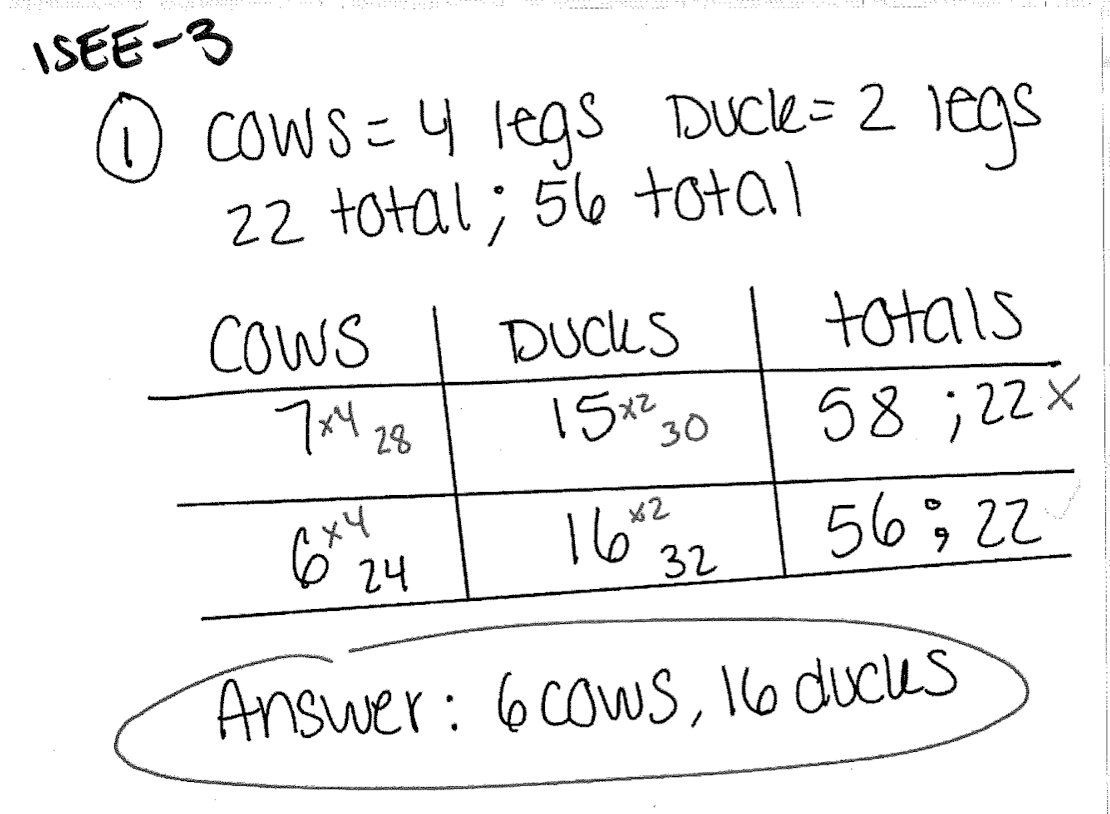 ISEE-3
① COWS = 4 legs Duck = 2 legs
22 total; 56 total
COWS Ducks totals
7 x4 28 15 x2 30 58 ; 22 x
6 x4 24 16 x2 32 56 ; 22 ✓
Answer: 6 cows, 16 ducks